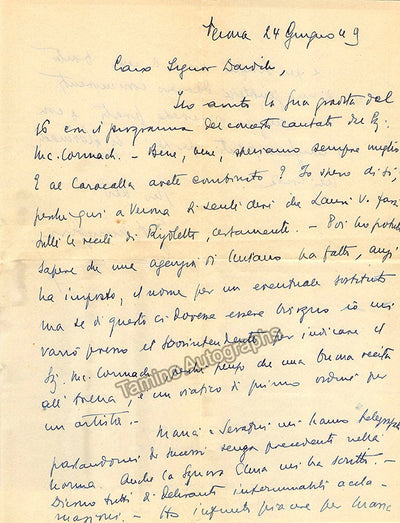 Verona 24 Giugno 49
Caro Signor
Ho avuto la Sua gradita del
16 con il programma del concerto cantato dal Sig.
Mc. Cormach. - Bene, bene, speriamo sempre meglio
E al Caracalla avete combinato? Io spero di si,
perché qui a Verona si sente dire che Lauri V. farà
tutte le recite di Rigoletto, certamente. - Poi ho potuto
sapere che una agenzia di Milano ha fatto, anzi
ha imposto, il nome per un eventuale sostituto
ma se di questo ci dovesse essere bisogno io mi
presso il Sovrintendente per indicare il
Sig. Mc. Cormach perché penso che una buona recita
all'Arena, è un viatico di primo ordine per
un artista. -
Tamino Autographs
Maria e Serafin mi hanno telegrafato
parlandomi di successi senza precedenti nella
Norma. Anche la Signora Elena mi ha scritto. -
Dicono tutti di deliranti interminabili accla-
mazioni. - Ho infiniti piacere per